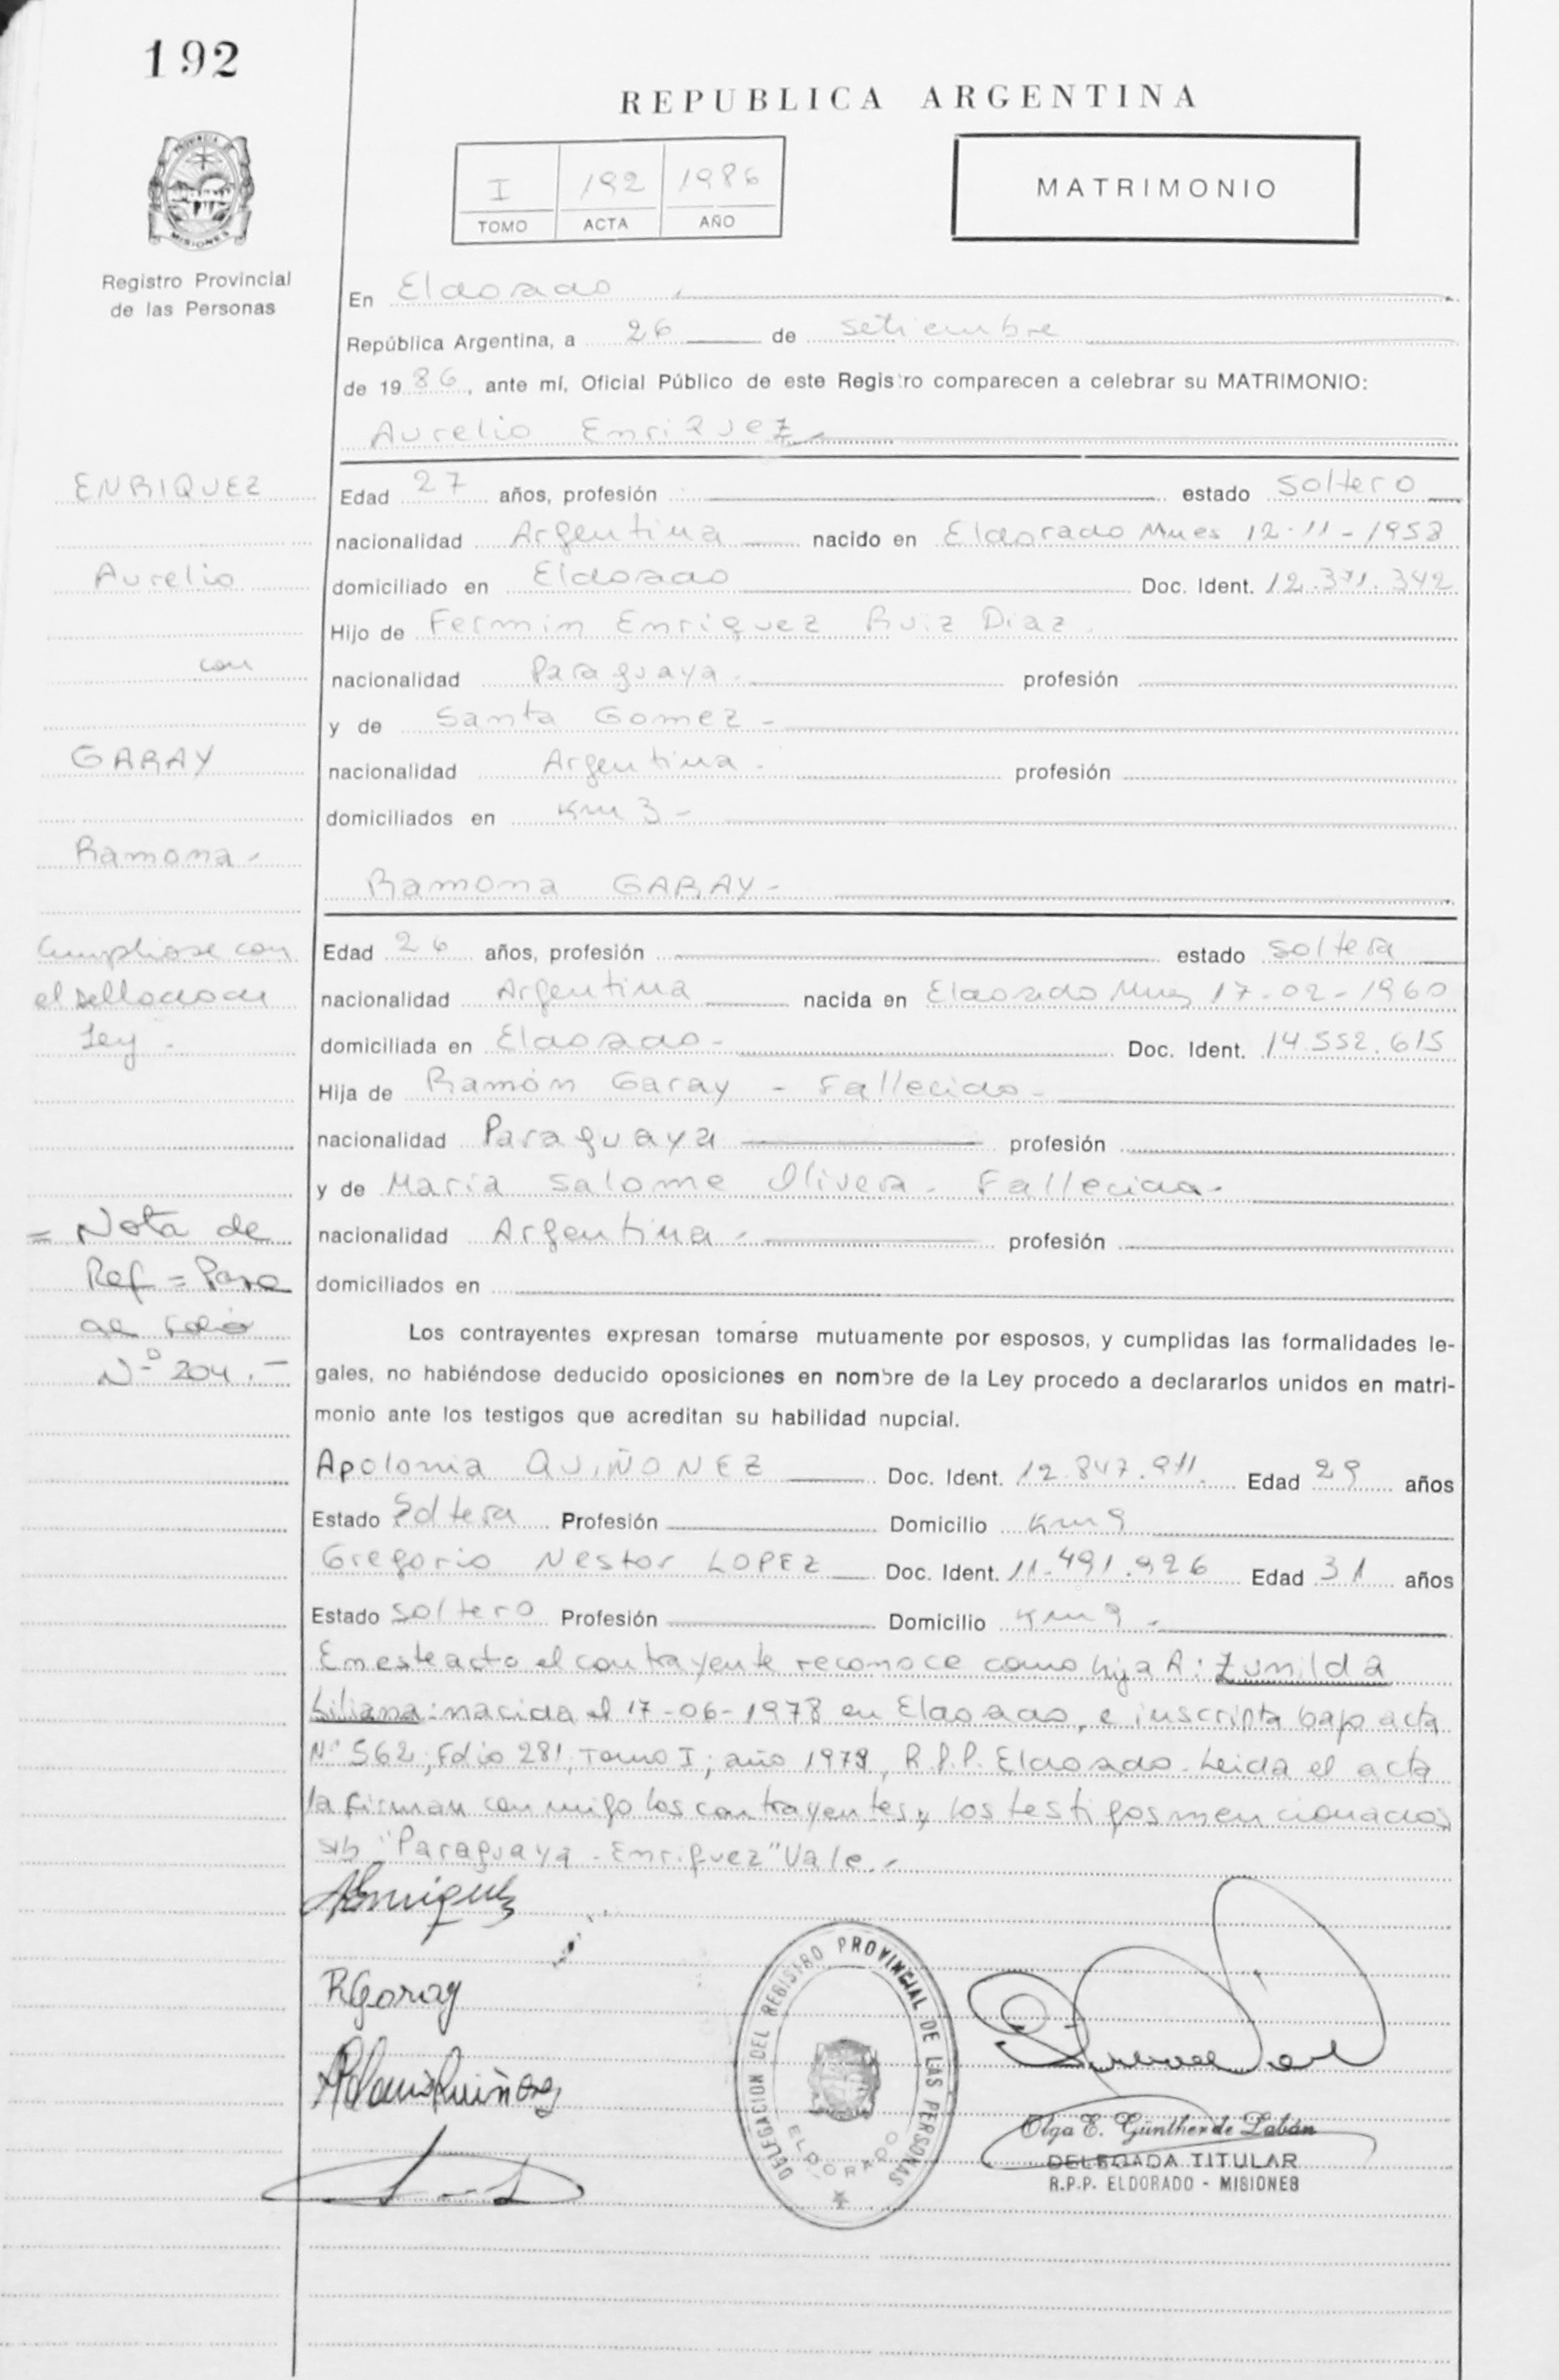 192
REPUBLICA ARGENTINA
PROVINCIA DE MISIONES
Registro Provincial
de las Personas
I 192 1986
TOMO ACTA AÑO
MATRIMONIO
En Eldorado
República Argentina, a 26 de setiembre
de 1986, ante mí, Oficial Público de este Registro comparecen a celebrar su MATRIMONIO:
Aurelio Enriquez
ENRIQUEZ
Aurelio
con
GARAY
Ramona -
Cumpliose con
el sellado de
Ley -
= Nota de
Ref = Pase
al folio
Nº 204. -
Edad 27 años, profesión estado soltero
nacionalidad Argentina nacido en Eldorado Mnes 12-11-1958
domiciliado en Eldorado Doc. Ident. 12.371.342
Hijo de Fermin Enriquez Ruiz Diaz.
nacionalidad Paraguaya - profesión
y de Santa Gomez -
nacionalidad Argentina - profesión
domiciliados en Km 3 -
Ramona GARAY -
Edad 26 años, profesión estado soltera
nacionalidad Argentina nacida en Eldorado Mnes 17-02-1960
domiciliada en Eldorado - Doc. Ident. 14.552.615
Hija de Ramón Garay - Fallecido -
nacionalidad Paraguaya profesión
y de Maria Salome Olivera - Fallecida -
nacionalidad Argentina - profesión
domiciliados en
Los contrayentes expresan tomarse mutuamente por esposos, y cumplidas las formalidades le-
gales, no habiéndose deducido oposiciones en nombre de la Ley procedo a declararlos unidos en matri-
monio ante los testigos que acreditan su habilidad nupcial.
Apolonia QUIÑONEZ Doc. Ident. 12.847.911. Edad 29 años
Estado Soltera Profesión Domicilio Km 9
Gregorio Nestor LOPEZ Doc. Ident. 11.491.926 Edad 31 años
Estado soltero Profesión Domicilio Km 9 -
En este acto el contrayente reconoce como hija A: Zunilda
Liliana: nacida el 17-06-1978 en Eldorado, e inscripta bajo acta
Nº 562; Folio 281; Tomo I; año 1978, R.P.P. Eldorado. Leida el acta
la firman conmigo los contrayentes y los testigos mencionados
s/b "Paraguaya - Enriquez" Vale. -
AEnriquez
RGaray
DELEGACION DEL REGISTRO PROVINCIAL DE LAS PERSONAS
ELDORADO
Olga E. Günther de Labán
DELEGADA TITULAR
R.P.P. ELDORADO - MISIONES